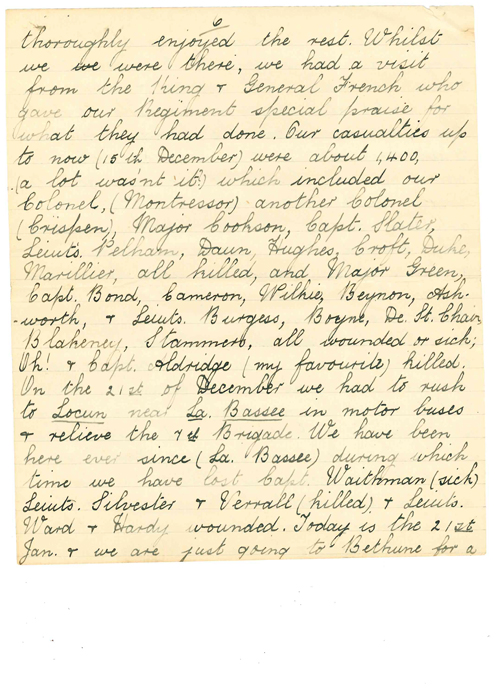 6
thoroughly enjoyed the rest. Whilst
we we were there, we had a visit
from the King & General French who
gave our Regiment special praise for
what they had done. Our casualties up
to now (15th December) were about 1,400,
(a lot was'nt it?) which included our
Colonel, (Montressor) another Colonel
(Crispen), Major Cookson, Capt. Slater,
Leiuts. Pelham, Daun, Hughes, Croft, Duke,
Marillier, all killed, and Major Green,
Capt. Bond, Cameron, Wilkie, Beynon, Ash-
-worth, & Leiuts. Burgess, Boyne, De. St. Chair,
Blakeney, Stammers, all wounded or sick;
Oh! & Capt. Aldridge (my favourite) killed.
On the 21st of December we had to rush
to Locun near La. Bassee in motor buses
& relieve the 7th Brigade. We have been
here ever since (La. Bassee) during which
time we have lost Capt. Waithman (sick)
Leiuts. Silvester & Verrall (killed) & Leiuts.
Ward & Hardy wounded. Today is the 21st
Jan. & we are just going to Bethune for a